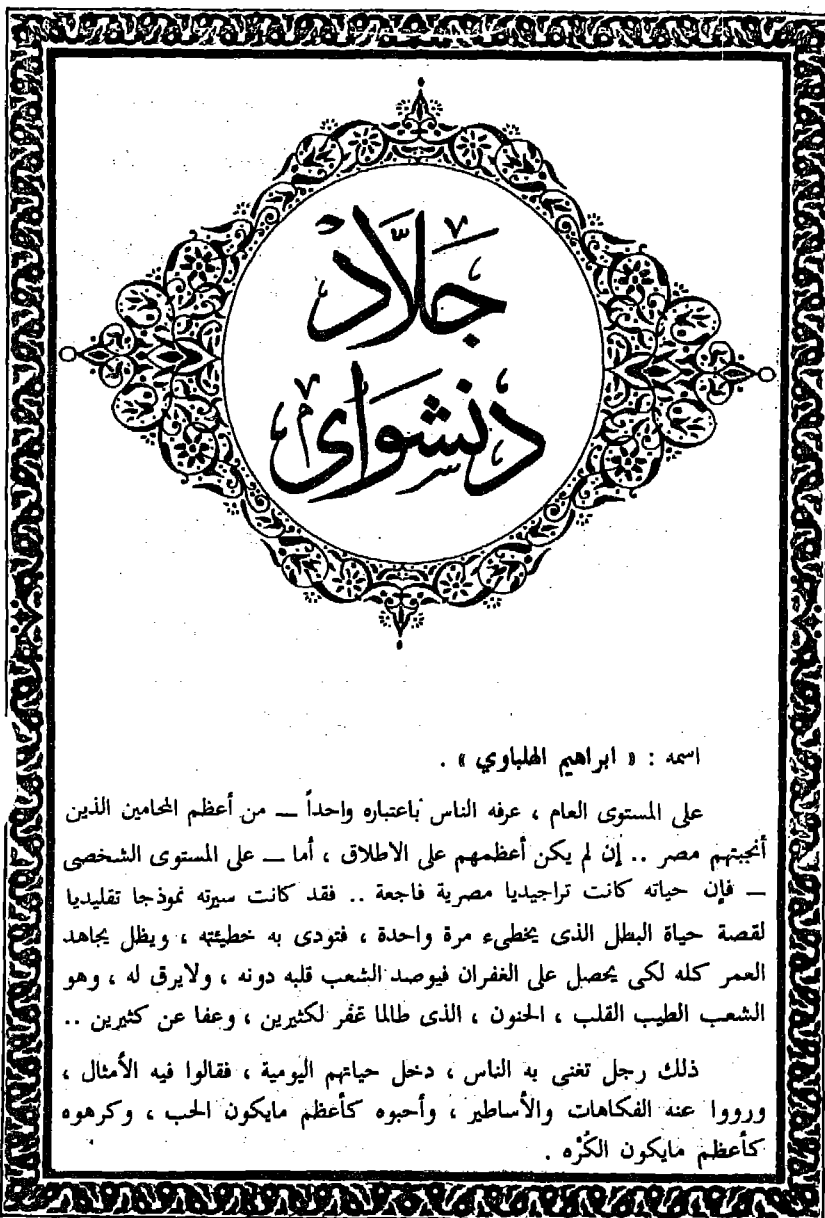 جلاّد
دنشواى
اسمه : « ابراهيم الهلباوي » .
على المستوى العام ، عرفه الناس باعتباره واحداً — من أعظم المحامين الذين
أنجبتهم مصر .. إن لم يكن أعظمهم على الاطلاق ، أما — على المستوى الشخصى
— فإن حياته كانت تراجيديا مصرية فاجعة .. فقد كانت سيرته نموذجا تقليديا
لقصة حياة البطل الذى يخطىء مرة واحدة ، فتودى به خطيئته ، ويظل يجاهد
العمر كله لكى يحصل على الغفران فيوصد الشعب قلبه دونه ، ولايرق له ، وهو
الشعب الطيب القلب ، الحنون ، الذى طالما غفر لكثيرين ، وعفا عن كثيرين ..
ذلك رجل تغنى به الناس ، دخل حياتهم اليومية ، فقالوا فيه الأمثال ،
ورووا عنه الفكاهات والأساطير ، وأحبوه كأعظم مايكون الحب ، وكرهوه
كأعظم مايكون الكُرْه .